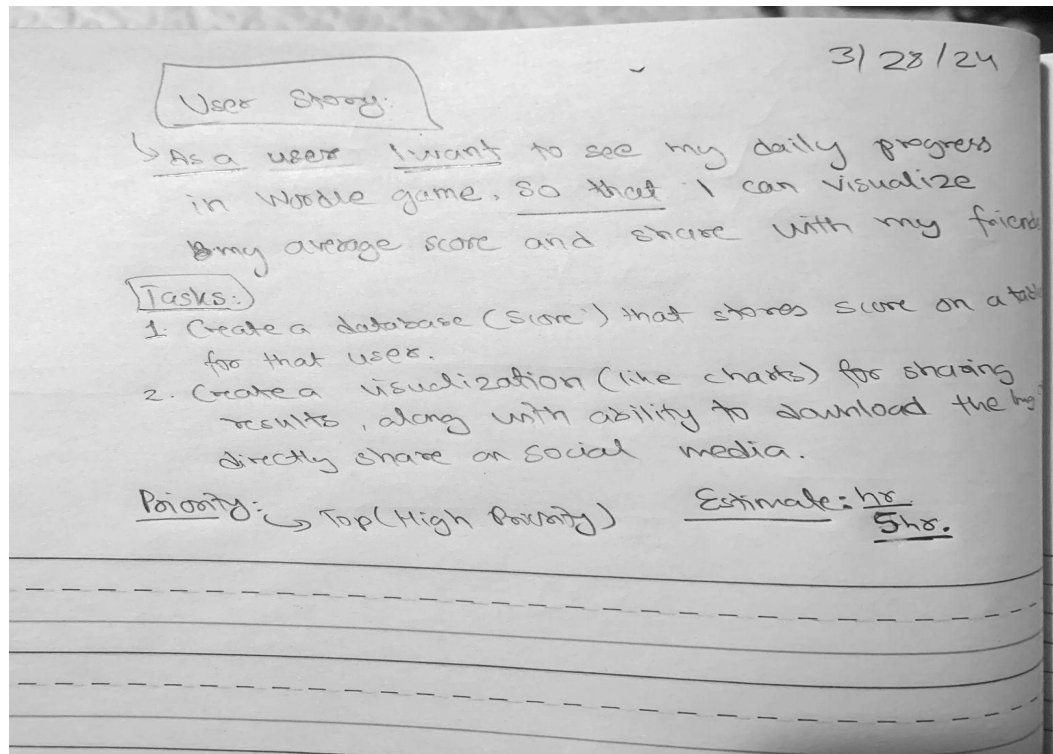 3/28/24
User Story:
As a user I want to see my daily progress
in Wordle game, so that I can visualize
my average score and share with my friends
Tasks:
1. Create a database (score) that stores score on a table
for that user.
2. Create a visualization (like charts) for sharing
results, along with ability to download the
directly share on social media.
Priority: Top (High Priority) Estimate: hr
5hr.